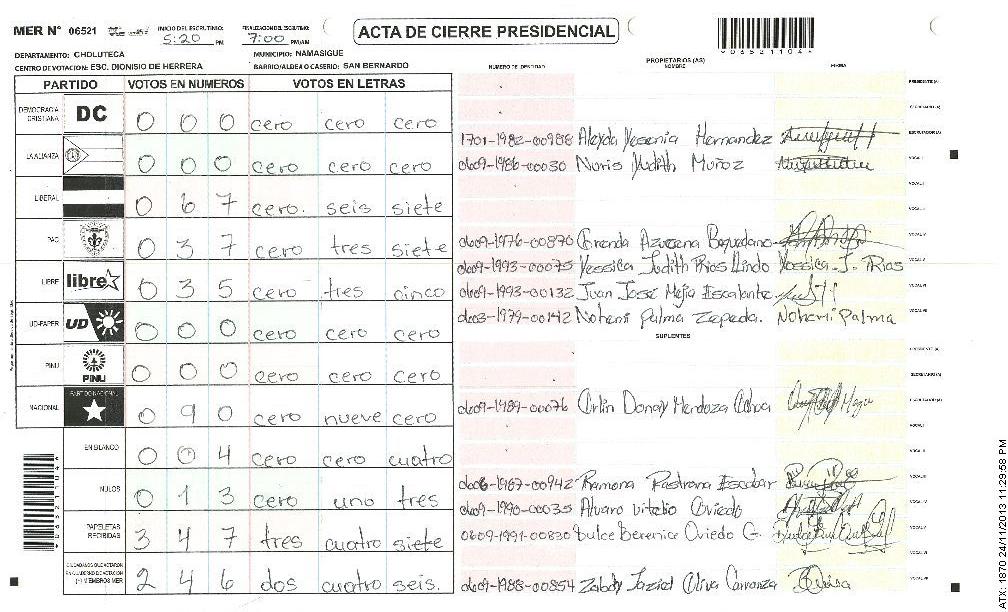 MER N° 06521 INICIO DEL ESCRUTINIO: 5:20 PM FINALIZACION DEL ESCRUTINIO: 7:00 PM/AM
ACTA DE CIERRE PRESIDENCIAL
DEPARTAMENTO: CHOLUTECA MUNICIPIO: NAMASIGUE
CENTRO DE VOTACION: ESC. DIONISIO DE HERRERA BARRIO/ALDEA O CASERIO: SAN BERNARDO
NUMERO DE IDENTIDAD PROPIETARIOS (AS) NOMBRE FIRMA
PARTIDO VOTOS EN NUMEROS VOTOS EN LETRAS
DEMOCRACIA CRISTIANA DC 0 0 0 cero cero cero
LA ALIANZA 0 0 0 cero cero cero
LIBERAL 0 6 7 cero. seis siete
PAC 0 3 7 cero tres siete
LIBRE libre 0 3 5 cero tres cinco
UD-FAPER UD 0 0 0 cero cero cero
PINU PINU 0 0 0 cero cero cero
NACIONAL PARTIDO NACIONAL 0 9 0 cero nueve cero
EN BLANCO 0 0 4 cero cero cuatro
NULOS 0 1 3 cero uno tres
PAPELETAS RECIBIDAS 3 4 7 tres cuatro siete
CIUDADANOS QUE VOTARON EN CUADERNO DE VOTACION (+) MIEMBROS MER 2 4 6 dos cuatro seis.
PRESIDENTE (A)
SECRETARIO (A)
1701-1982-00988 Hernandez ESCRUTADOR (A)
0609-1986-00030 Nuris Judith Muñoz VOCAL I
VOCAL II
VOCAL III
0609-1976-00870 Brenda Azucena Baquedano VOCAL IV
0609-1993-00075 Yessica Judith Rios Lindo Yessica J. Rios VOCAL V
0609-1993-00132 Juan José Mejia Escalante VOCAL VI
0603-1979-00142 Nohemi Palma Zepeda. Nohemi Palma VOCAL VII
SUPLENTES
PRESIDENTE (A)
SECRETARIO (A)
0609-1989-00076 Mendoza Ochoa ESCRUTADOR (A)
VOCAL I
VOCAL II
0606-1967-00942 Ramona Pastrana Escobar VOCAL III
0609-1990-00035 Alvaro vitelio Oviedo VOCAL IV
0609-1991-00830 Dulce Berenice Oviedo G. VOCAL V
VOCAL VI
0609-1988-00854 Oliva Carranza VOCAL VII
ATX 1870 24/11/2013 11:29:58 PM